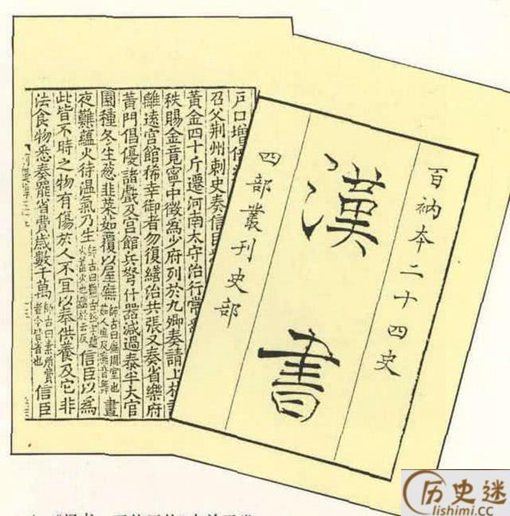 百衲本二十四史
漢書
四部叢刊史部
戶口增倍
召父荆州刺史奏信臣
黃金四十斤遷河南太守治行常爲
秩賜金竟寧中徵爲少府列於九卿奏請上林
離遠宮館稀幸御者勿復繕治共張又奏省樂府
黃門倡優諸戲及宮館兵弩什器減過泰半太官
園種冬生葱韭菜茹覆以屋廡晝
夜㸐蘊火待溫氣乃生信臣以爲
此皆不時之物有傷於人不宜以奉供養及它非
法食物悉奏罷省費歲數千萬信臣
历史迷
lishimi.cc